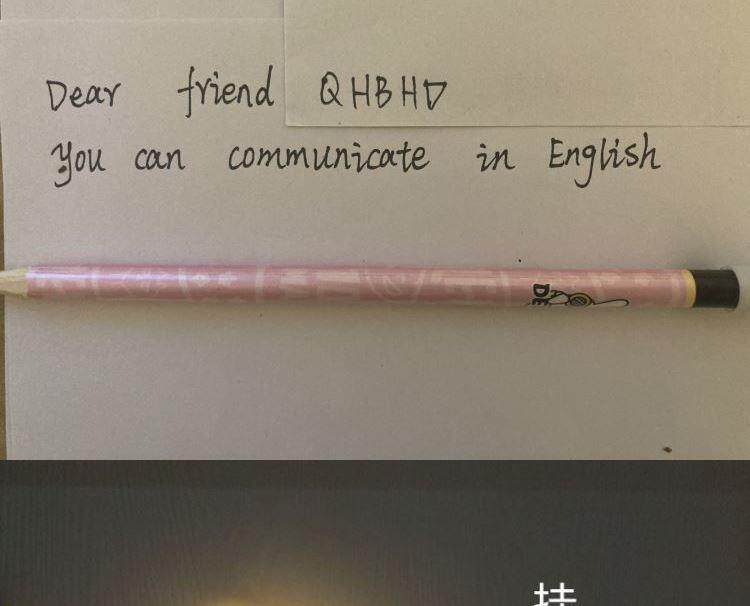 Dear friend QHBHD
You can communicate in English
DE